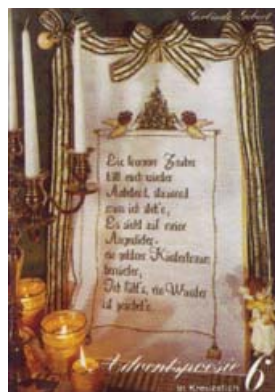 Gerlinde Gebert
Ein frommer Zauber
hält mich wieder
Anbetend, staunend
muss ich steh'n;
Es sinkt auf meine
Augenlider,
ein goldner Kindertraum
hernieder,
Ich fühl's, ein Wunder
ist gescheh'n.
Adventspoesie 6
in Kreuzstich